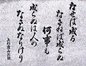 なせは成る
なさねは成らぬ
何事も
成らぬは人の
なさぬなりけり